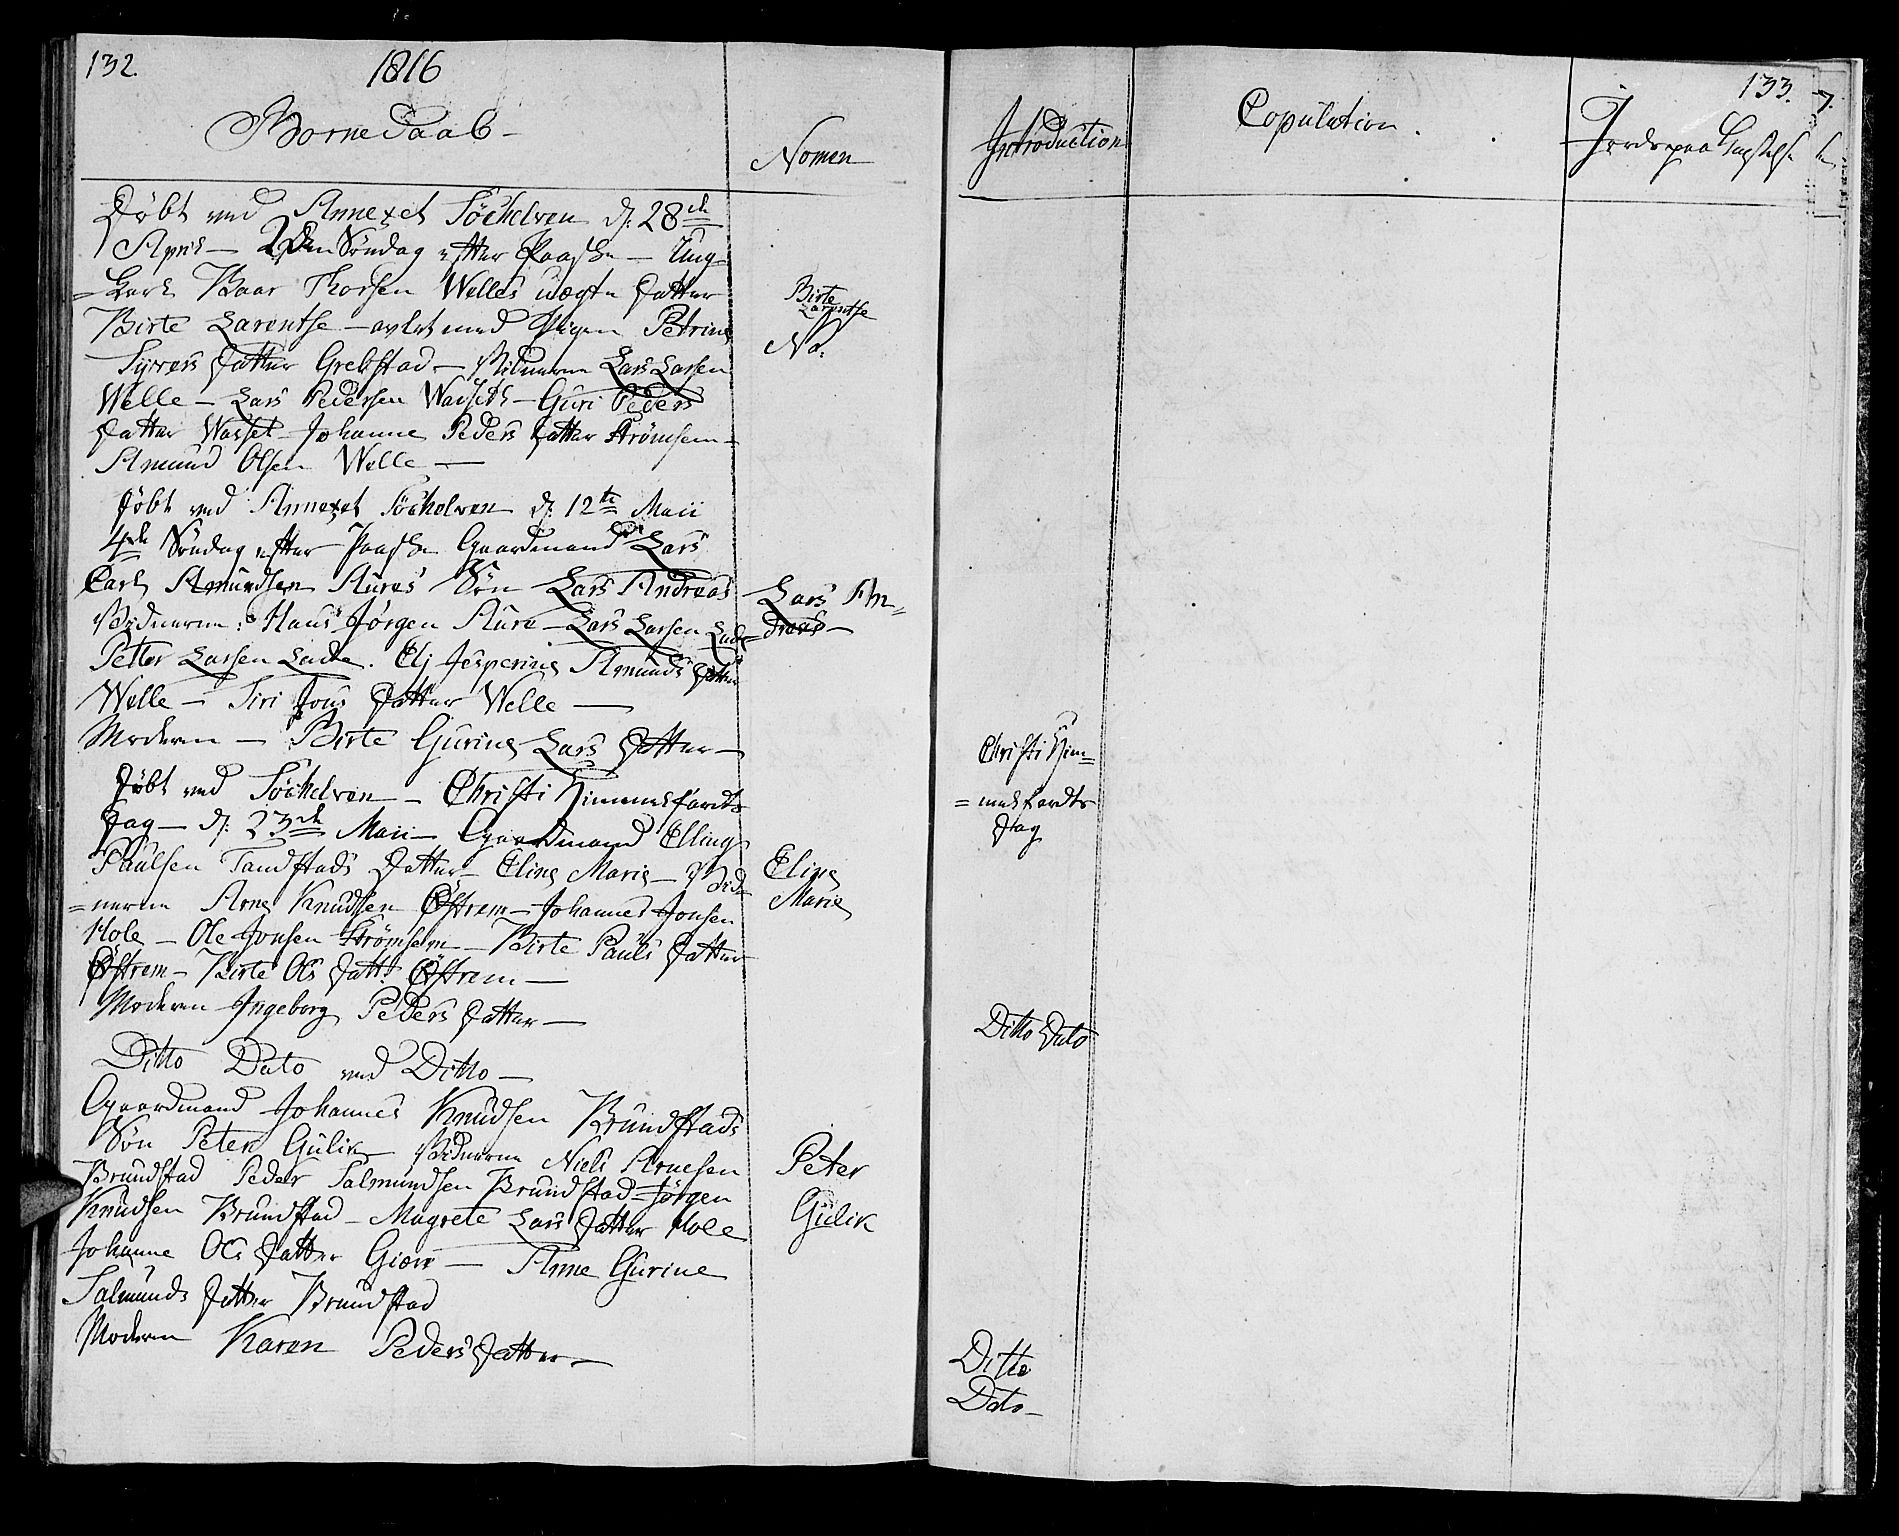 132.
1816
Börne Daab -
Nomen
Döbt ved Annexet Söckelven d: 28de
April - 2den Söndag efter Paaske - Ung-
= karl Baar Thorsen Welles uægte Datter
Birte Larentse - avlet med Pigen Petrine
Syvers Datter Grebstad - Vidnerne Lars Larsen
Welle - Lars Pedersen Wadseth - Guri Peders
Datter Wasset - Johanne Peders Datter Strömsem =
Amund Olsen Welle -
Birte
Larentse
No.
Döbt ved Annexet Söckelven d: 12te Maii
4de Söndag efter Paaske Gaardmand Lars
Carl Amundsen Aures Sön Lars Andreas
Vidnerne: Hans Jörgen Aure - Lars Larsen Lade
Petter Larsen Lade. Elj Jesperine Amunds Datter
Welle - Siri Jons Datter Welle -
Moderen - Birte Gurine Lars Datter -
Lars An=
dreas -
Döbt ved Söckelven - Christi Himmelfardts
Dag - d: 23de Maii - Gaardmand Elling
Paulsen Tandstads Datter - Eline Marie - Vid=
= nerne Arne Knudsen Østrem - Johannes Jonsen
Hole - Ole Jonsen Strömsem - Birte Pauls Datter
Østrem - Birte Ols Datt: Østrem -
Moderen Ingeborg Peders Datter -
Eline
Marie
Ditto Dato ved Ditto -
Gaardmand Johannes Knudsen Brundstads
Sön Peter Gulik - Vidnerne Niels Arnesen
Brundstad Peder Salmundsen Brundstad - Jörgen
Knudsen Brundstad - Magrete Lars Datter Hole
Johanne Ols Datter Giære - Anne Gurine
Salmunds Datter Brundstad
Moderen Karen Peders Datter -
Peter
Gulik
133.
Introduction
Copulation.
Jords paa Kastelse
Christi Him=
= melfardts
Dag
Ditto Dato
Ditto
Dato -